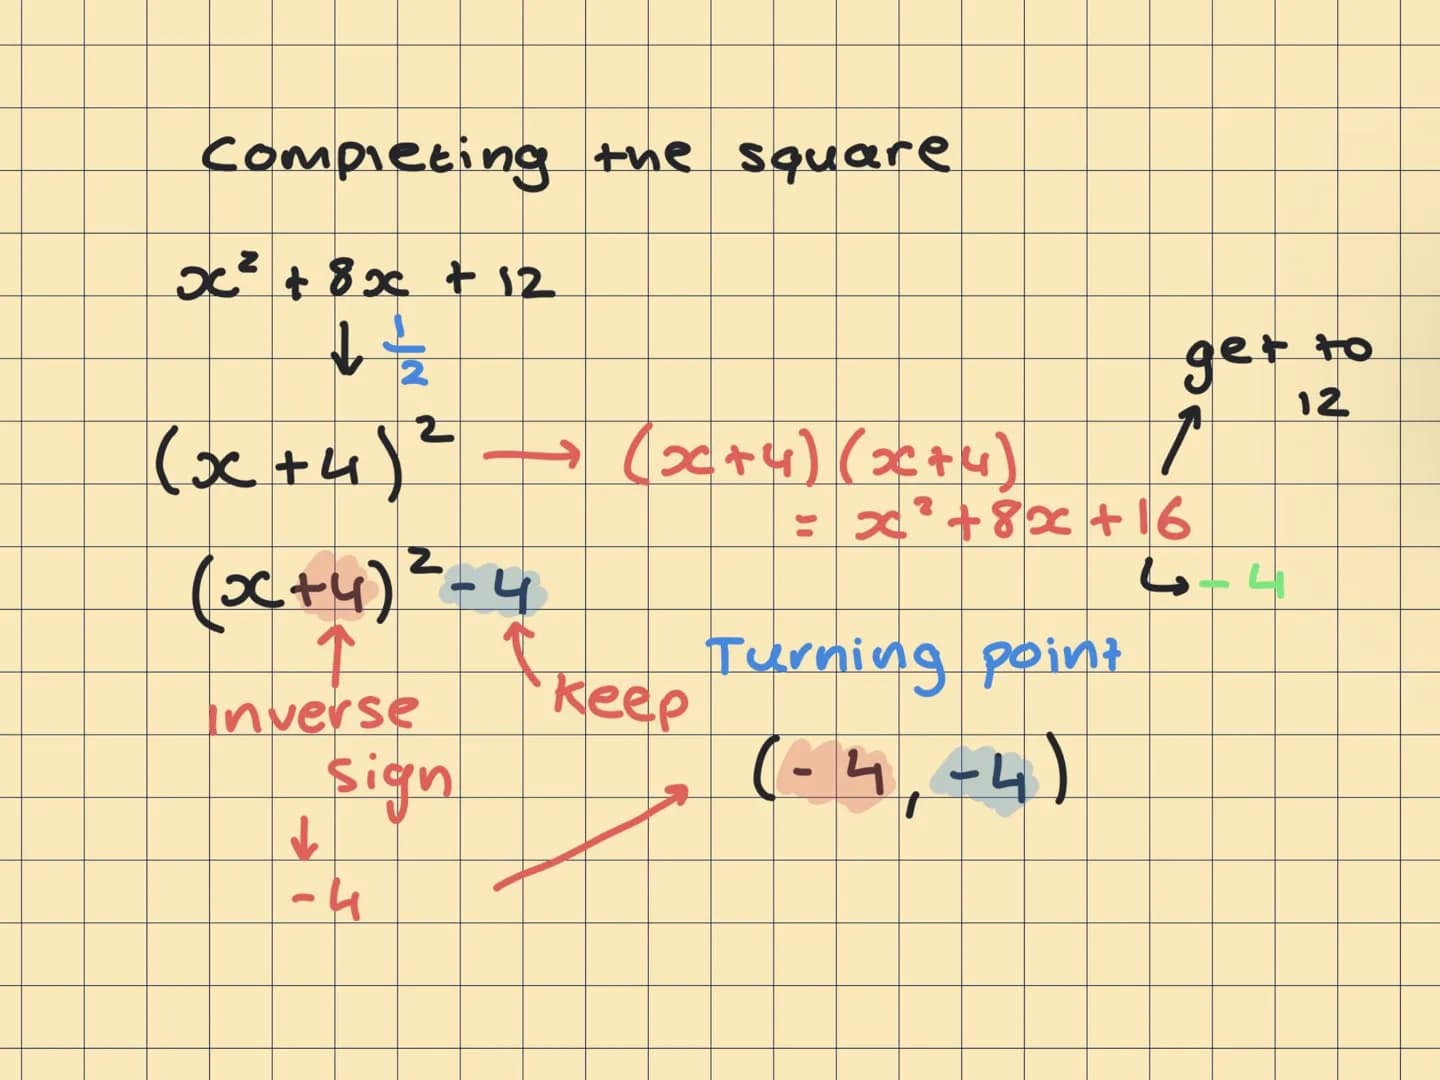 Completing the square
x² + 8x + 12
↓ 1/2
get to
12
(x+4)² → (x+4)(x+4)
= x²+8x+16
↳ -4
(x+4)² -4
inverse
sign
keep
↓
-4
Turning point
(-4, -4)